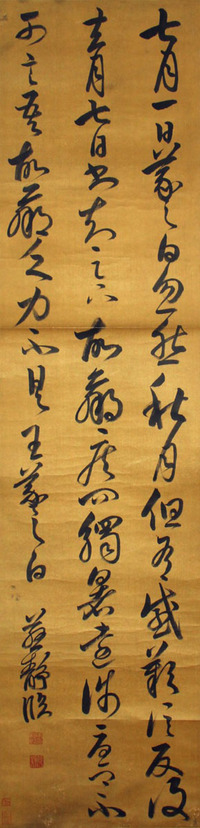 七月一日羲之白忽然秋月但有感歎信反得
去月七日書知足下故羸疾問觸暑遠涉憂卿不
可言吾故羸乏力不具王羲之白 靜臨